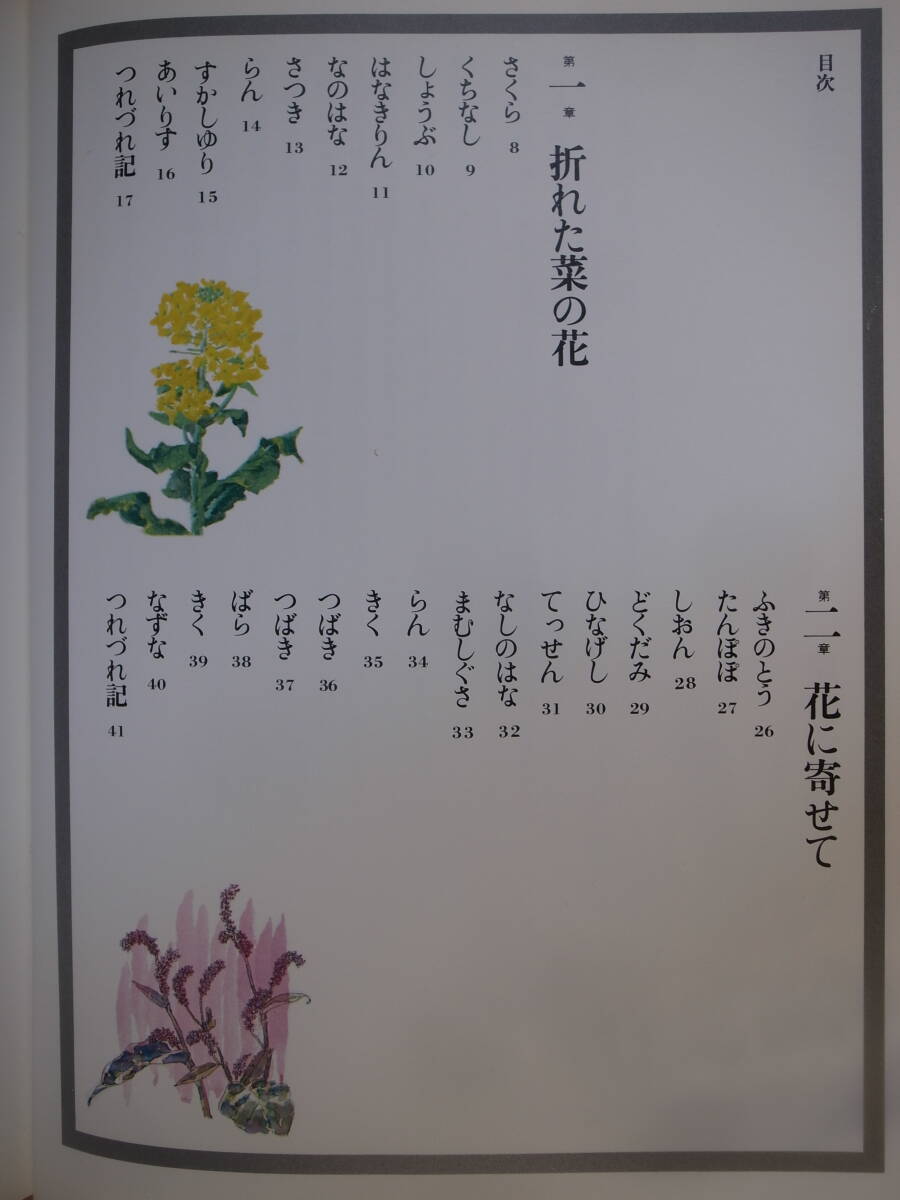 目次
第一章 折れた菜の花
さくら 8
くちなし 9
しょうぶ 10
はなきりん 11
なのはな 12
さつき 13
らん 14
すかしゆり 15
あいりす 16
つれづれ記 17
第二章 花に寄せて
ふきのとう 26
たんぽぽ 27
しおん 28
どくだみ 29
ひなげし 30
てっせん 31
なしのはな 32
まむしぐさ 33
らん 34
きく 35
つばき 36
つばき 37
ばら 38
きく 39
なずな 40
つれづれ記 41